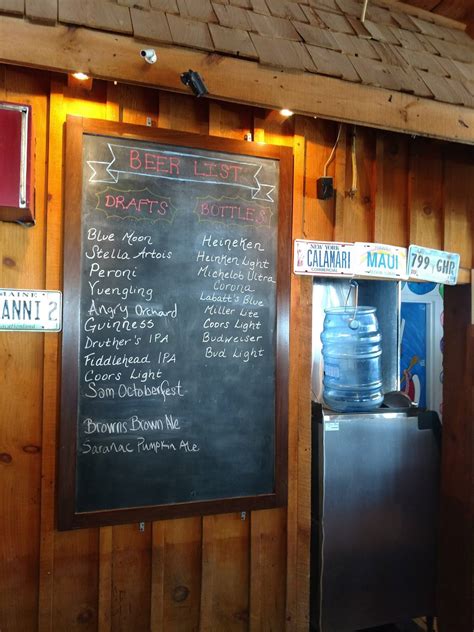 BEER LIST
DRAFTS
Blue Moon
Stella Artois
Peroni
Yuengling
Angry Orchard
Guinness
Druther's IPA
Fiddlehead IPA
Coors Light
Sam Octoberfest
Browns Brown Ale
Saranac Pumpkin Ale
BOTTLES
Heineken
Heineken Light
Michelob Ultra
Corona
Labatt's Blue
Miller Lite
Coors Light
Budweiser
Bud Light
MAINE
ANNI 2
Vacationland
NEW YORK
CALAMARI
COMMERCIAL
MAUI
799 GHR